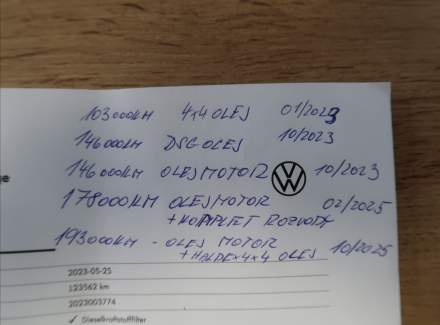 103000KM 4x4 OLEJ 01/2023
146000KM DSG OLEJ 10/2023
146000KM OLEJ MOTOR 10/2023
178000KM OLEJ MOTOR 02/2025
+ KOMPLET ROZVODY
193000KM - OLEJ MOTOR 10/2025
+ HALDEX 4x4 OLEJ
2023-05-25
123562 km
2023003774
✓ Dieselkraftstofffilter